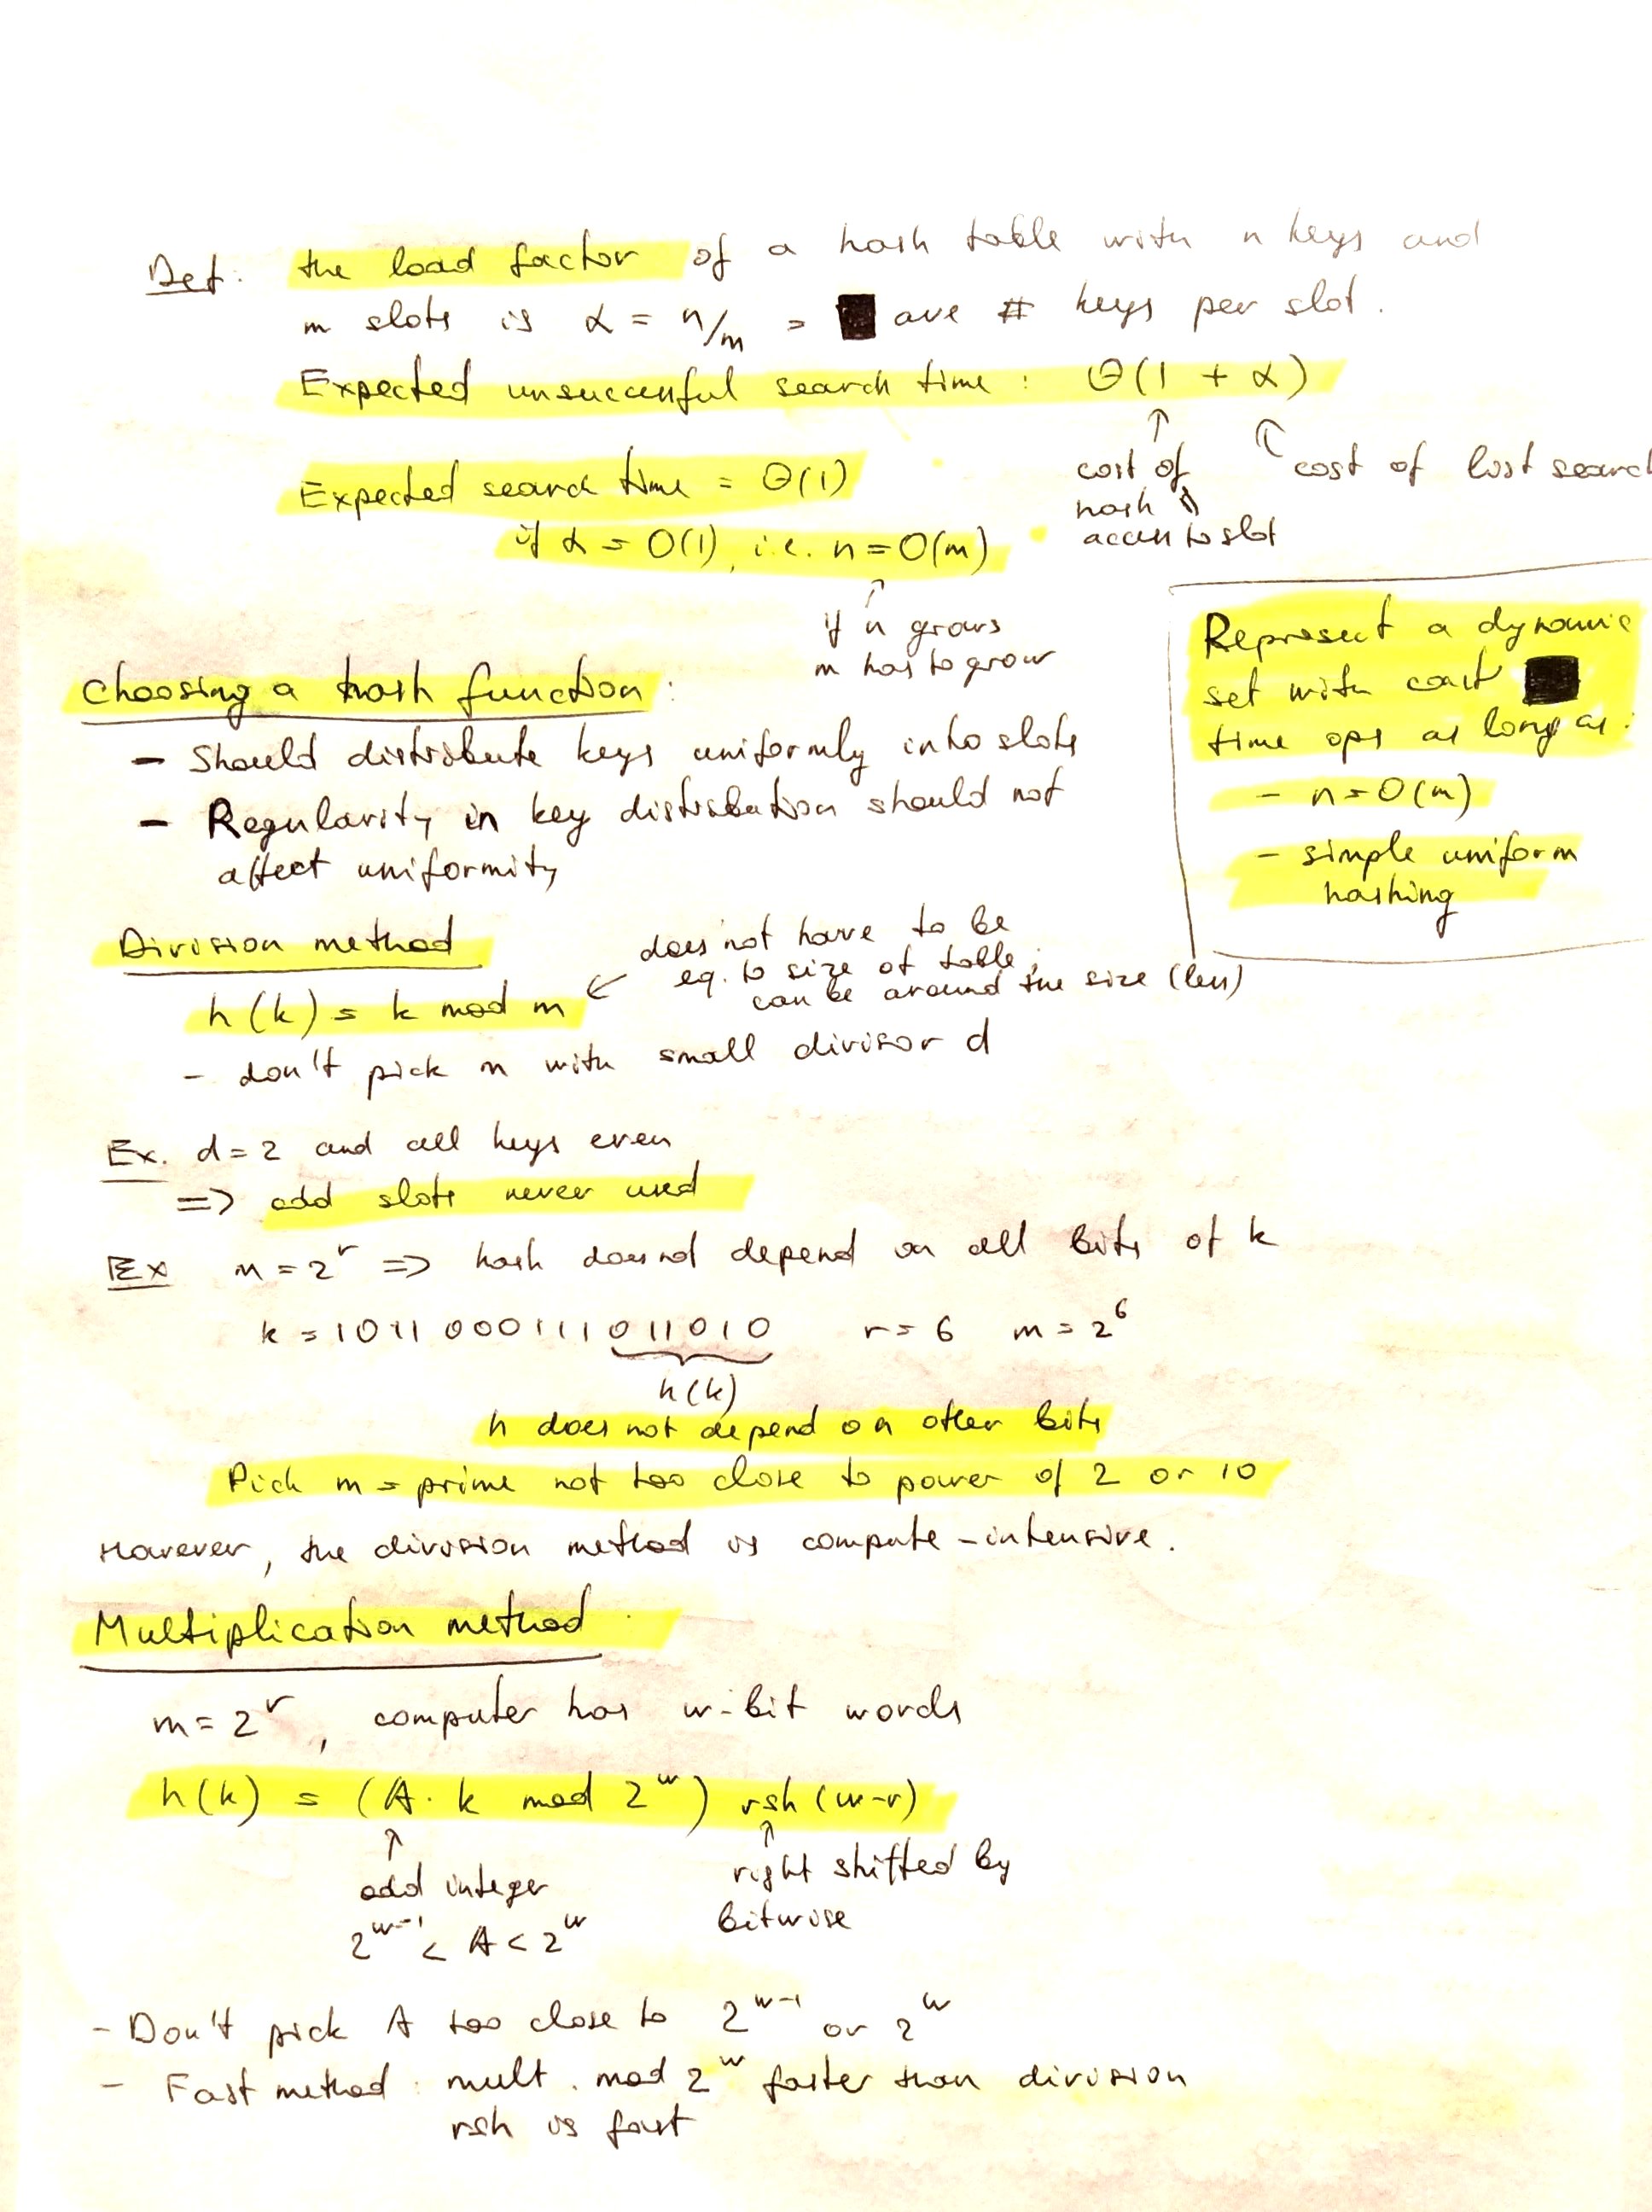 Def: the load factor of a hash table with n keys and
m slots is α = n/m = ave # keys per slot.
Expected unsuccessful search time : Θ(1 + α)
↑ cost of hash & access to slot
↑ cost of list search
Expected search time = Θ(1)
if α = O(1), i.e. n = O(m)
↑
if n grows
m has to grow
Represent a dynamic
set with cost
time ops as long as:
- n = O(m)
- simple uniform
hashing
Choosing a hash function:
- Should distribute keys uniformly into slots
- Regularity in key distribution should not
affect uniformity
Division method
h(k) = k mod m ←
does not have to be
eq. to size of table,
can be around the size (len)
- don't pick m with small divisor d
Ex. d = 2 and all keys even
=> odd slots never used
Ex m = 2^r => hash does not depend on all bits of k
k = 1011000111011010 r = 6 m = 2^6
h(k)
h does not depend on other bits
Pick m = prime not too close to power of 2 or 10
However, the division method is compute-intensive.
Multiplication method
m = 2^r, computer has w-bit words
h(k) = (A · k mod 2^w) rsh (w-r)
↑
odd integer
2^(w-1) < A < 2^w
↑
right shifted by
bitwise
- Don't pick A too close to 2^(w-1) or 2^w
- Fast method: mult. mod 2^w faster than division
rsh is fast